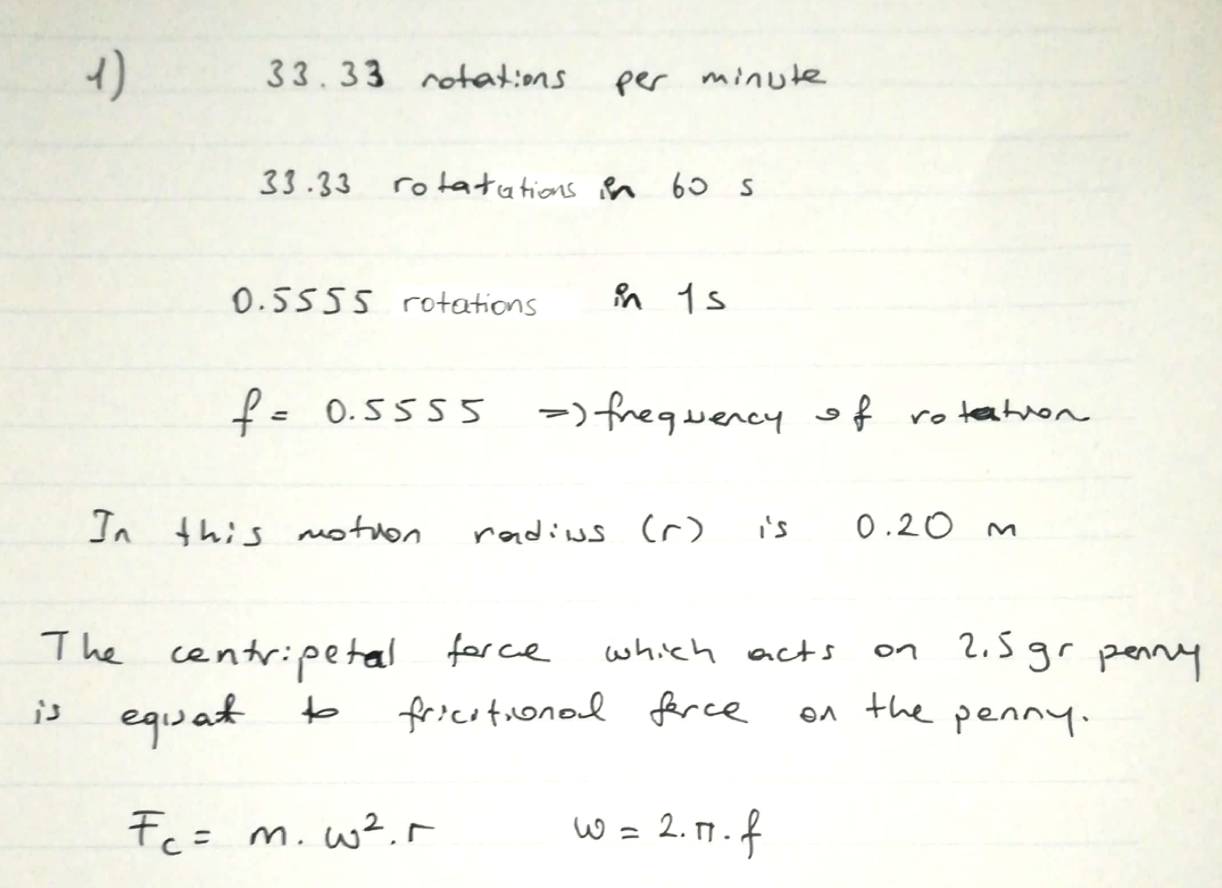 1) 33.33 rotations per minute
33.33 rotatutions in 60 s
0.5555 rotations in 1s
f = 0.5555 => frequency of rotation
In this motion radius (r) is 0.20 m
The centripetal force which acts on 2.5 gr penny
is equat to fricitional force on the penny.
Fc = m. w².r w = 2.π.f